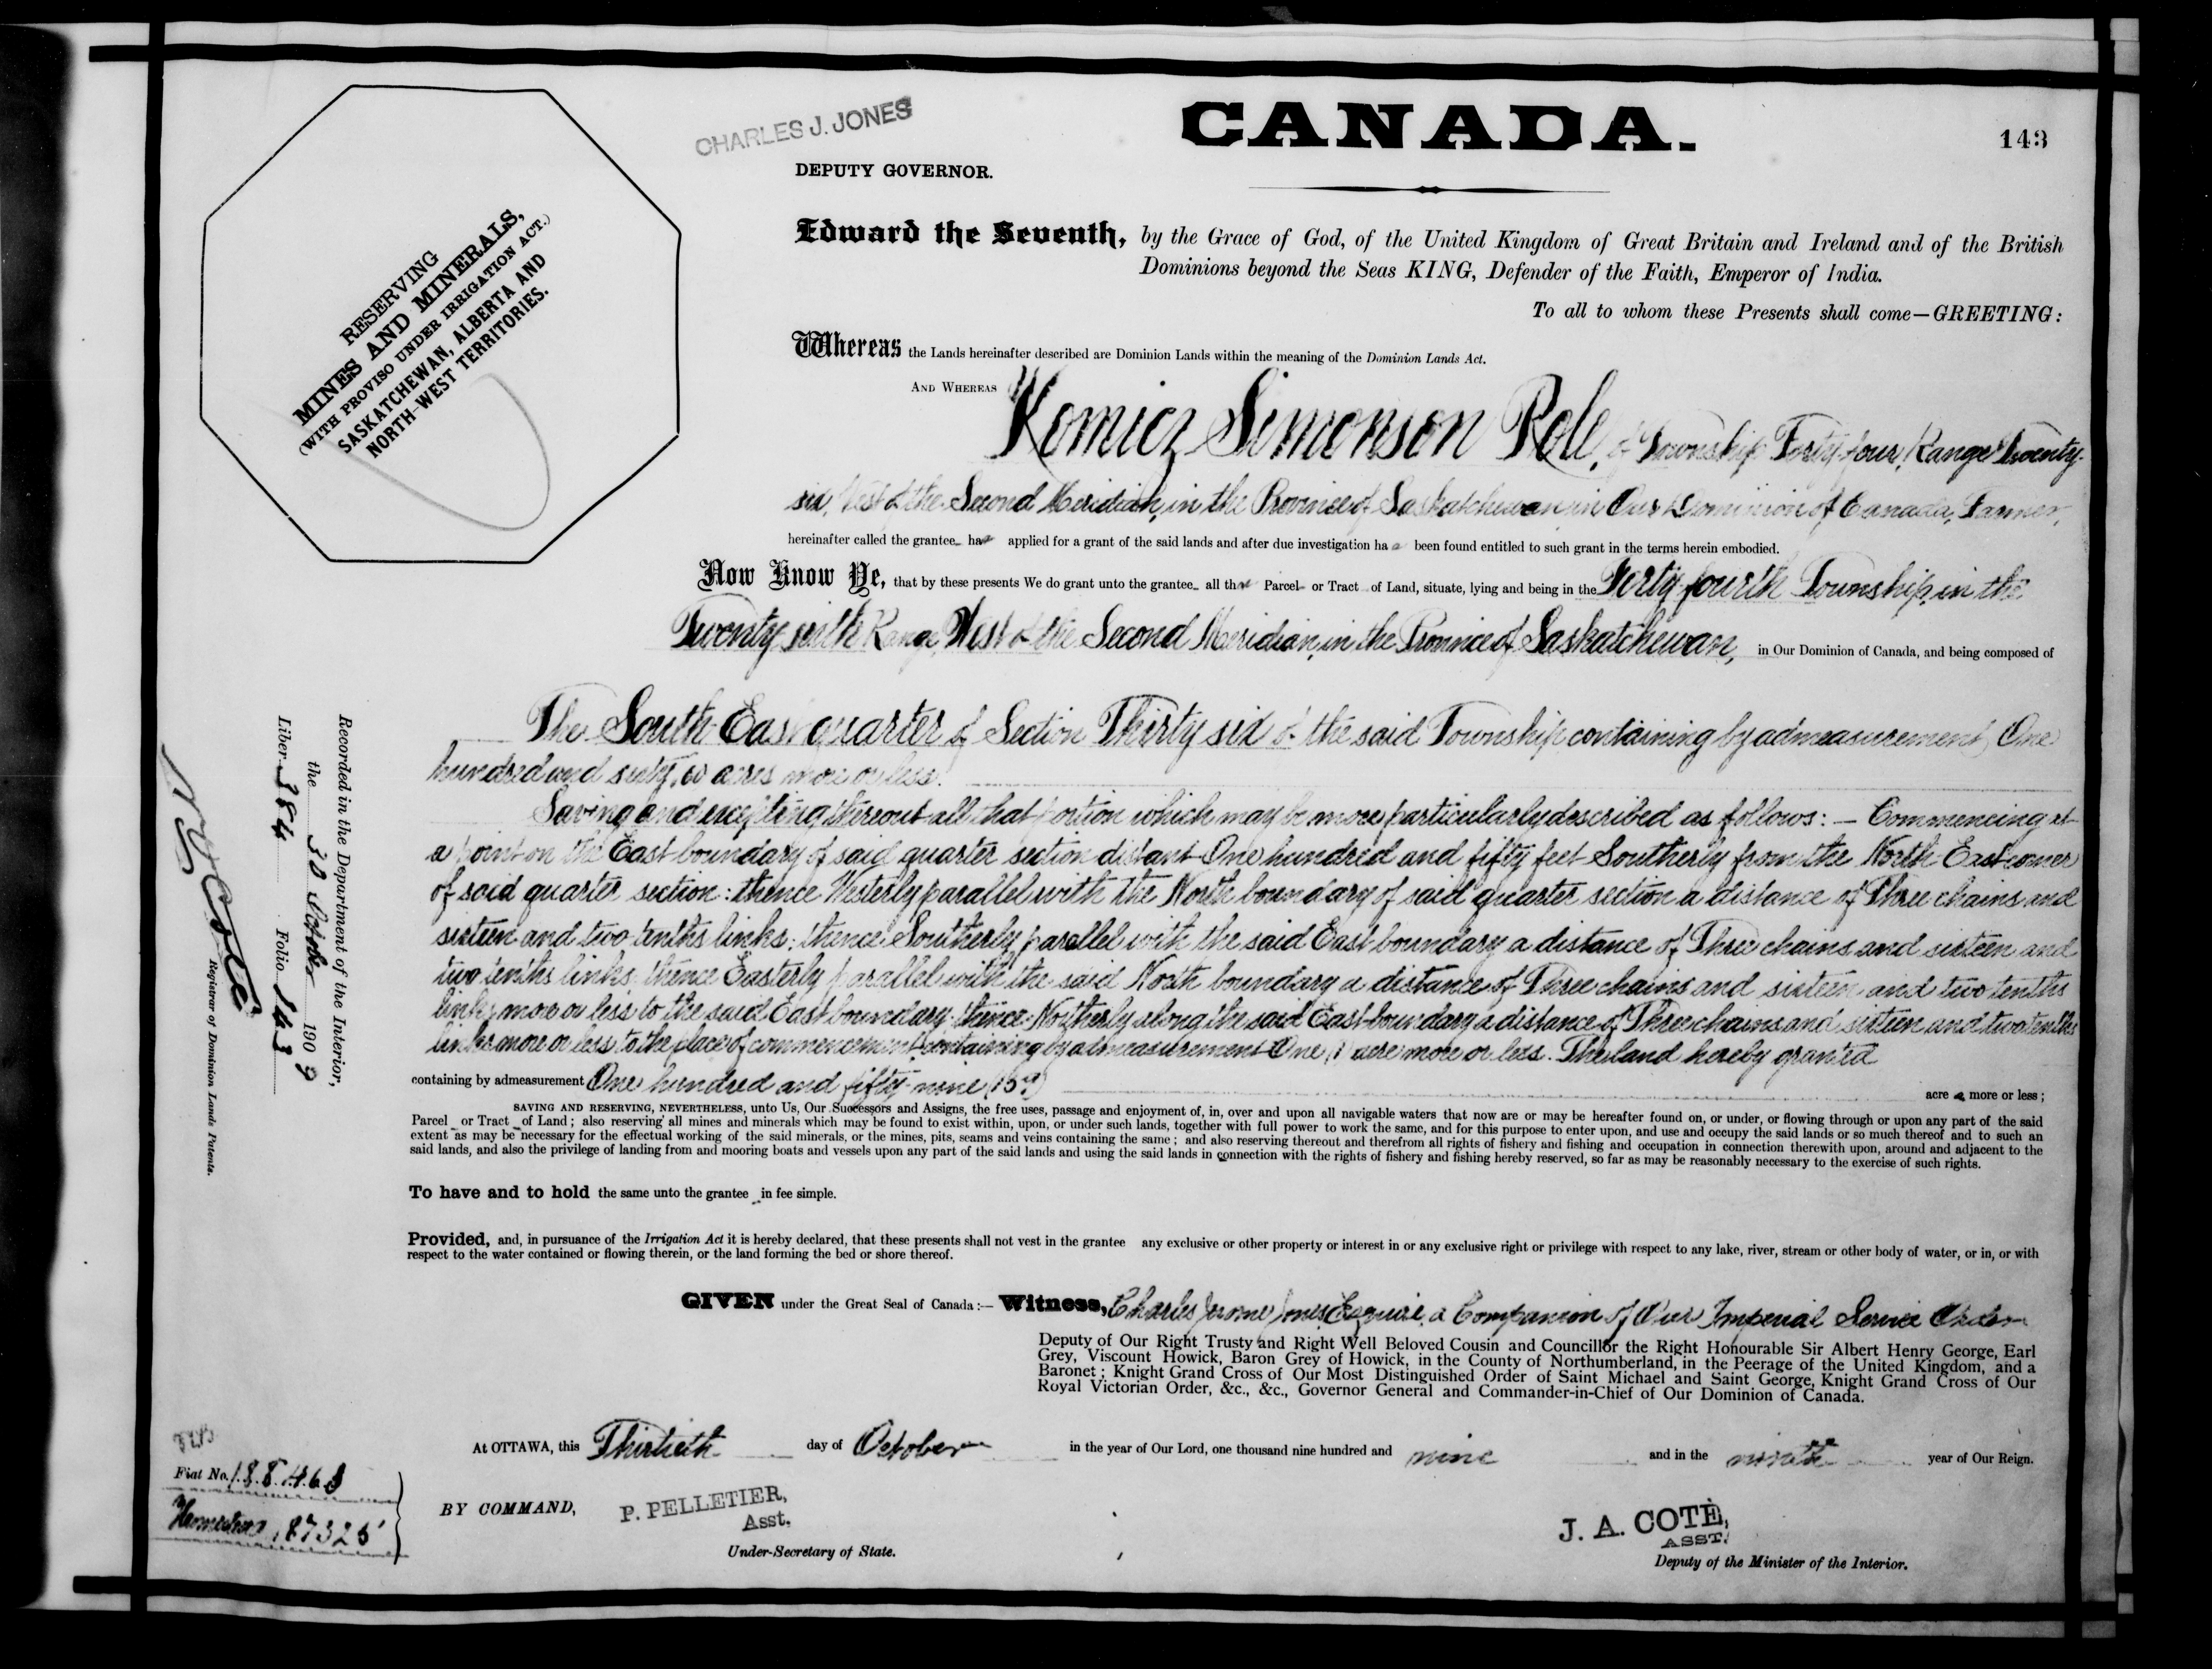 CHARLES J. JONES
DEPUTY GOVERNOR.
CANADA.
143
RESERVING
MINES AND MINERALS,
(WITH PROVISO UNDER IRRIGATION ACT.)
SASKATCHEWAN, ALBERTA AND
NORTH-WEST TERRITORIES.
Edward the Seventh, by the Grace of God, of the United Kingdom of Great Britain and Ireland and of the British
Dominions beyond the Seas KING, Defender of the Faith, Emperor of India.
To all to whom these Presents shall come—GREETING:
Whereas the Lands hereinafter described are Dominion Lands within the meaning of the Dominion Lands Act.
AND WHEREAS Simonson of Township Forty-four, Range Twenty-
six, West of the Second Meridian, in the Province of Saskatchewan in Our Dominion of Canada, Farmer,
hereinafter called the grantee has applied for a grant of the said lands and after due investigation has been found entitled to such grant in the terms herein embodied.
Now Know Ye, that by these presents We do grant unto the grantee all that Parcel or Tract of Land, situate, lying and being in the Forty-fourth Township, in the
Twenty sixth Range, West of the Second Meridian, in the Province of Saskatchewan, in Our Dominion of Canada, and being composed of
The South East quarter of Section Thirty six of the said Township containing by admeasurement, One
hundred and sixty acres more or less.
Saving and excepting thereout all that portion which may be more particularly described as follows: — Commencing at
a point on the East boundary of said quarter section distant One hundred and fifty feet Southerly from the North East corner
of said quarter section: thence Westerly parallel with the North boundary of said quarter section a distance of Three chains and
sixteen and two tenths links; thence Southerly parallel with the said East boundary a distance of Three chains and sixteen and
two tenths links thence Easterly parallel with the said North boundary a distance of Three chains and sixteen and two tenths
links more or less to the said East boundary: thence Northerly along the said East boundary a distance of Three chains and sixteen and two tenths
links more or less to the place of commencement containing by admeasurement One (1) acre more or less. The land hereby granted
containing by admeasurement One hundred and fifty-nine (159) acres more or less;
SAVING AND RESERVING, NEVERTHELESS, unto Us, Our Successors and Assigns, the free uses, passage and enjoyment of, in, over and upon all navigable waters that now are or may be hereafter found on, or under, or flowing through or upon any part of the said
Parcel or Tract of Land; also reserving all mines and minerals which may be found to exist within, upon, or under such lands, together with full power to work the same, and for this purpose to enter upon, and use and occupy the said lands or so much thereof and to such an
extent as may be necessary for the effectual working of the said minerals, or the mines, pits, seams and veins containing the same; and also reserving thereout and therefrom all rights of fishery and fishing and occupation in connection therewith upon, around and adjacent to the
said lands, and also the privilege of landing from and mooring boats and vessels upon any part of the said lands and using the said lands in connection with the rights of fishery and fishing hereby reserved, so far as may be reasonably necessary to the exercise of such rights.
To have and to hold the same unto the grantee in fee simple.
Provided, and, in pursuance of the Irrigation Act it is hereby declared, that these presents shall not vest in the grantee any exclusive or other property or interest in or any exclusive right or privilege with respect to any lake, river, stream or other body of water, or in, or with
respect to the water contained or flowing therein, or the land forming the bed or shore thereof.
GIVEN under the Great Seal of Canada:— Witness, Charles Jerome Jones Esquire, a Companion of Our Imperial Service Order
Deputy of Our Right Trusty and Right Well Beloved Cousin and Councillor the Right Honourable Sir Albert Henry George, Earl
Grey, Viscount Howick, Baron Grey of Howick, in the County of Northumberland, in the Peerage of the United Kingdom, and a
Baronet; Knight Grand Cross of Our Most Distinguished Order of Saint Michael and Saint George, Knight Grand Cross of Our
Royal Victorian Order, &c., &c., Governor General and Commander-in-Chief of Our Dominion of Canada.
At OTTAWA, this Thirtieth day of October in the year of Our Lord, one thousand nine hundred and nine and in the ninth year of Our Reign.
BY COMMAND,
P. PELLETIER,
Asst.
Under-Secretary of State.
J. A. COTÉ,
ASST.
Deputy of the Minister of the Interior.
Recorded in the Department of the Interior,
the 30 October 1909
Liber 384 Folio 143
Coté
Registrar of Dominion Lands Patents.
Fiat No. 188463
Homestead 187325